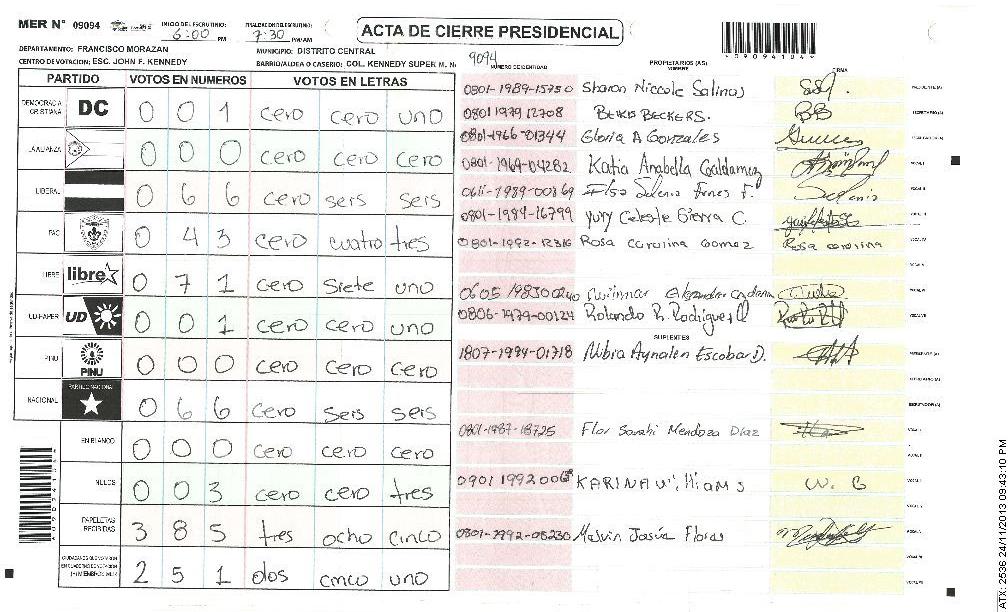 MER N° 09094
INICIO DEL ESCRUTINIO: 6:00 PM
FINALIZACION DEL ESCRUTINIO: 7:30 PM/AM
ACTA DE CIERRE PRESIDENCIAL
DEPARTAMENTO: FRANCISCO MORAZAN
MUNICIPIO: DISTRITO CENTRAL
CENTRO DE VOTACION: ESC. JOHN F. KENNEDY
BARRIO/ALDEA O CASERIO: COL. KENNEDY SUPER M. N
9094
PARTIDO VOTOS EN NUMEROS VOTOS EN LETRAS
DEMOCRACIA CRISTIANA DC 0 0 1 cero cero uno
LA ALIANZA 0 0 0 cero cero cero
LIBERAL 0 6 6 cero seis seis
PAC 0 4 3 cero cuatro tres
LIBRE libre 0 7 1 cero siete uno
UD-FAPER UD 0 0 1 cero cero uno
PINU PINU 0 0 0 cero cero cero
NACIONAL PARTIDO NACIONAL 0 6 6 cero seis seis
EN BLANCO 0 0 0 cero cero cero
NULOS 0 0 3 cero cero tres
PAPELETAS RECIBIDAS 3 8 5 tres ocho cinco
2 5 1 dos cinco uno
NUMERO DE IDENTIDAD PROPIETARIOS (AS) NOMBRE FIRMA
0801-1989-15750 Sharon Niccole Salinas
0801 1979 12708 BECKERS.
0801-1966-01344 Gloria A Gonzales
0801-1969-04282 Katia Anabella Galdamez
0611-1989-00869 Funes F.
0801-1984-16799 Yury Celeste Sierra C.
0801-1992-12316 Rosa carolina Gomez Rosa carolina
0605 1983 00240
0806-1979-00124 Rolando R. Rodriguez
SUPLENTES
1807-1994-01718 Nibia Aynalen Escobar D.
0801-1987-18725 Flor Sarahi Mendoza Díaz
0901 1992 006 KARINA Williams W. G
0801-1992-05230 Melvin Josúe Flores
ATX: 2536 24/11/2013 09:43:10 PM